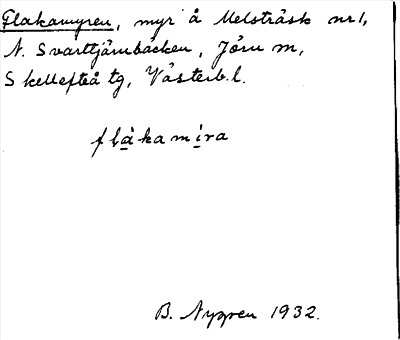 Flakamyren, myr å Melsträsk nr 1,
N. Svarttjärnbäcken, Jörn sn,
Skellefteå tg, Västerb. l.
flàkamíra
B. Nygren 1932.